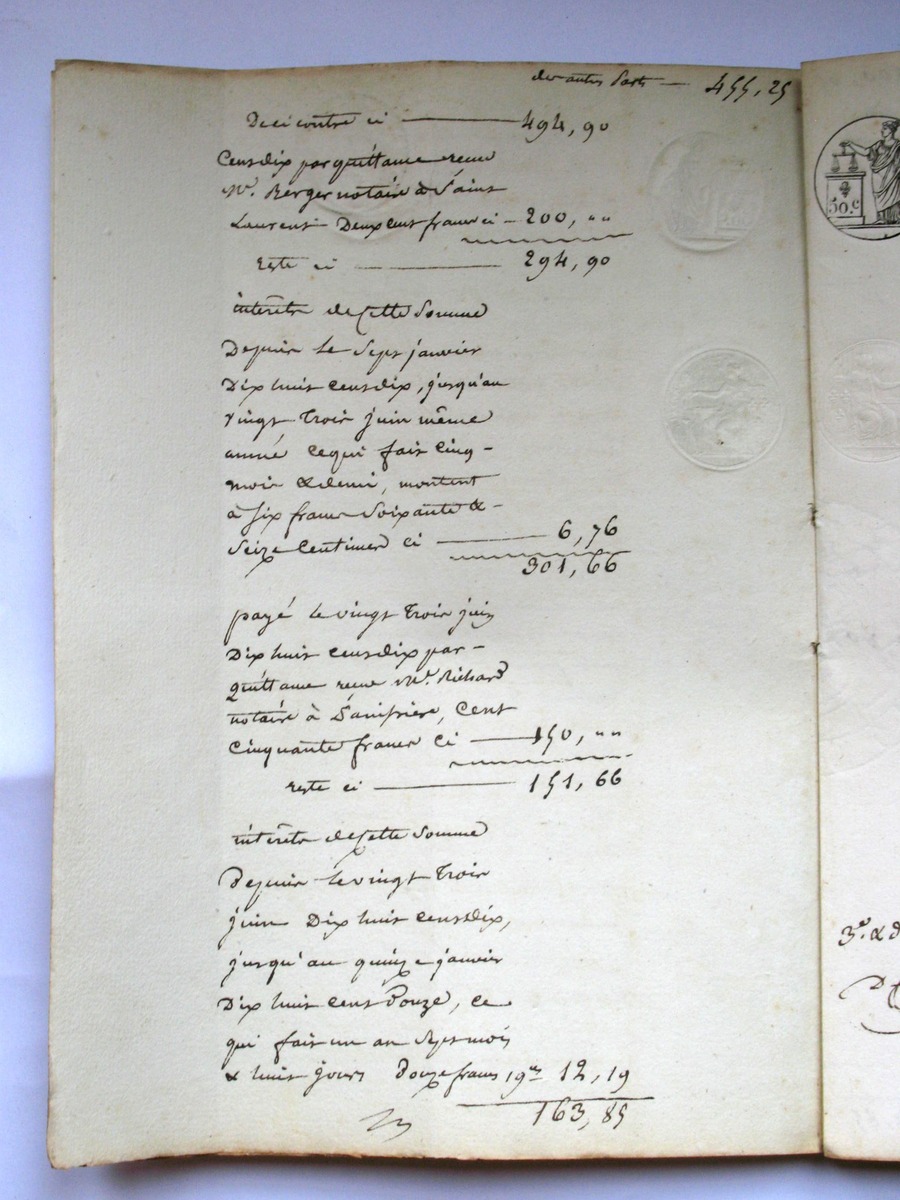 des autres parts — 455, 25
De ci contre ci — 494, 90
Cent dix par quittance reçue
Me. Berger notaire à Saint
Laurent Deux cent francs ci — 200, ""
reste ci — 294, 90
intérêts de Cette Somme
Depuis le Sept janvier
Dix huit cent dix, jusqu'au
vingt Trois juin même
année ce qui fait Cinq -
mois & demi, montent
à Six francs Soixante & -
Seize Centimes ci — 6, 76
301, 66
payé le vingt Trois juin
Dix huit cent dix par -
Quittance reçue Me. Richard
notaire à, Cent
Cinquante francs ci — 150, ""
reste ci — 151, 66
intérêts de Cette Somme
Depuis le vingt Trois
juin Dix huit cent dix,
jusqu'au quinze janvier
Dix huit cent Douze, ce
qui fait un an Sept mois
& huit jours Douze francs 19 12, 19
163, 85
50.c
3e. & d